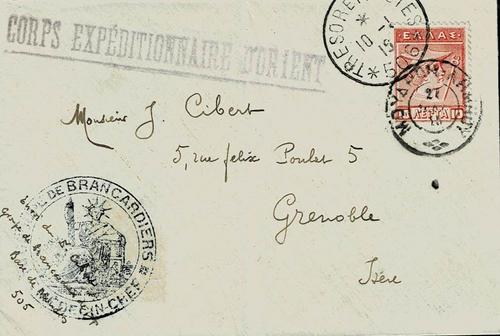 CORPS EXPÉDITIONNAIRE D'ORIENT
TRESOR ET POSTES
* 506 *
10 -1
16
ΕΛΛΑΣ
ΛΕΠΤΑ 10
27
Monsieur J. Cibert
5, rue felix Poulat 5
Grenoble
Isère
DE BRANCARDIERS
MÉDECIN-CHEF
groupe de brancardiers
Base de
505